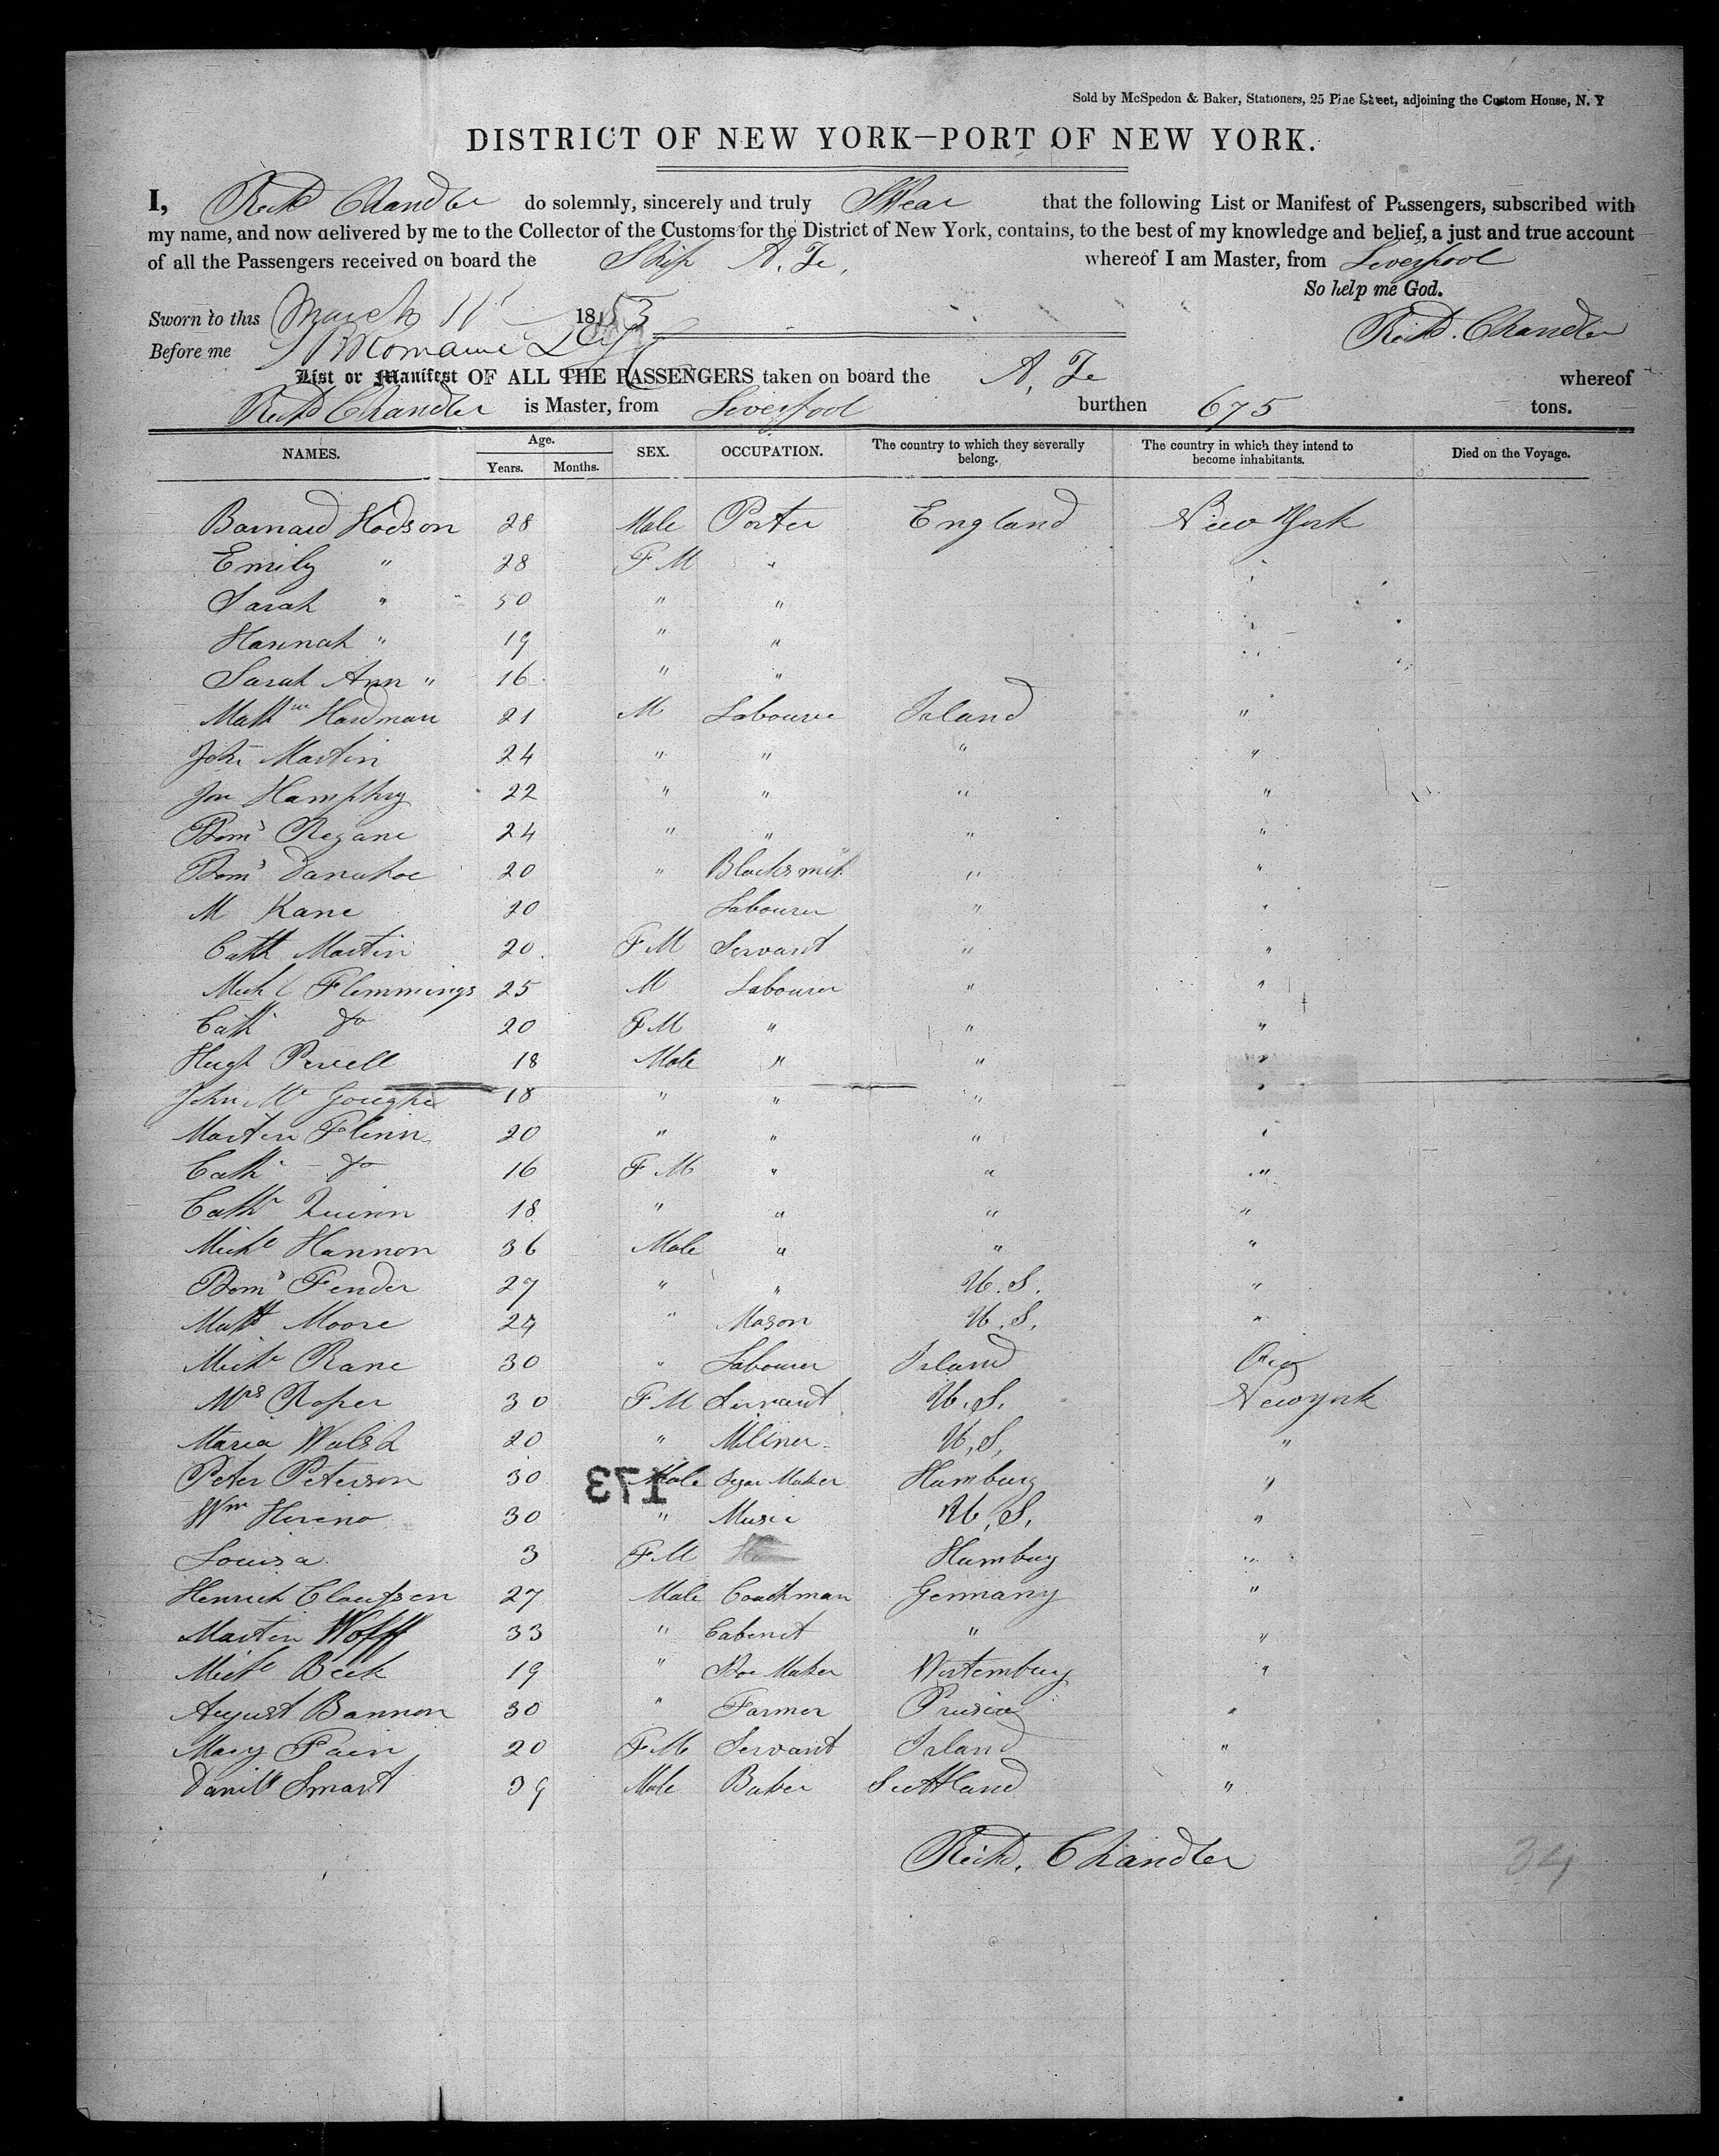 Sold by McSpedon & Baker, Stationers, 25 Pine Street, adjoining the Custom House, N. Y
DISTRICT OF NEW YORK—PORT OF NEW YORK.
I, Richd Chandler do solemnly, sincerely and truly Swear that the following List or Manifest of Passengers, subscribed with
my name, and now delivered by me to the Collector of the Customs for the District of New York, contains, to the best of my knowledge and belief, a just and true account
of all the Passengers received on board the Ship A. Z. whereof I am Master, from Liverpool
So help me God.
Sworn to this March 11 1853
Richd. Chandler
Before me
List or Manifest OF ALL THE PASSENGERS taken on board the A, Z whereof
Richd Chandler is Master, from Liverpool burthen 675 tons.
NAMES. Age. Years. Months. SEX. OCCUPATION. The country to which they severally belong. The country in which they intend to become inhabitants. Died on the Voyage.
Barnard Hodson 28 Male Porter England New York
Emily " 28 F M "
Sarah " 50 " "
Hannah " 19 " "
Sarah Ann " 16 " "
Matth Hardman 21 M Labourer Irland "
John Martin 24 " " " "
Jon Hamphry 22 " " " "
Regane 24 " " " "
Danahoe 20 " Blacksmith " "
M Kane 20 Labourer " "
Cath Martin 20 F M Servant " "
Michl Flemmings 25 M Labourer " "
Cath do 20 F M " " "
Hugh 18 Male " " "
John Mc 18 " " " "
Martin Flinn 20 " " " "
Cath do 16 F M " " "
Cathr Quinn 18 " " " "
Michl Hannon 36 Male " " "
Fender 27 " " U. S. "
Matt Moore 24 " Mason U. S. "
Michl Kane 30 " Labourer Irland
Mrs Roper 30 F M Servant U. S. New york
Maria Walsh 20 " Milliner U, S, "
Peter Peterson 30 Male Segar Maker Hamburg "
173
Wm 30 " Music U, S, "
Louisa 3 F M Hamburg "
Henrich Claussen 27 Male Coachman Germany "
Martin Wolff 33 " Cabenet " "
Michl Beck 19 " Shoe Maker Wirtemburg "
August Bannon 30 " Farmer Prusia "
Mary Fain 20 F M Servant Irland "
Daniel Smart 39 Male Baker Scottland "
Richd. Chandler
34